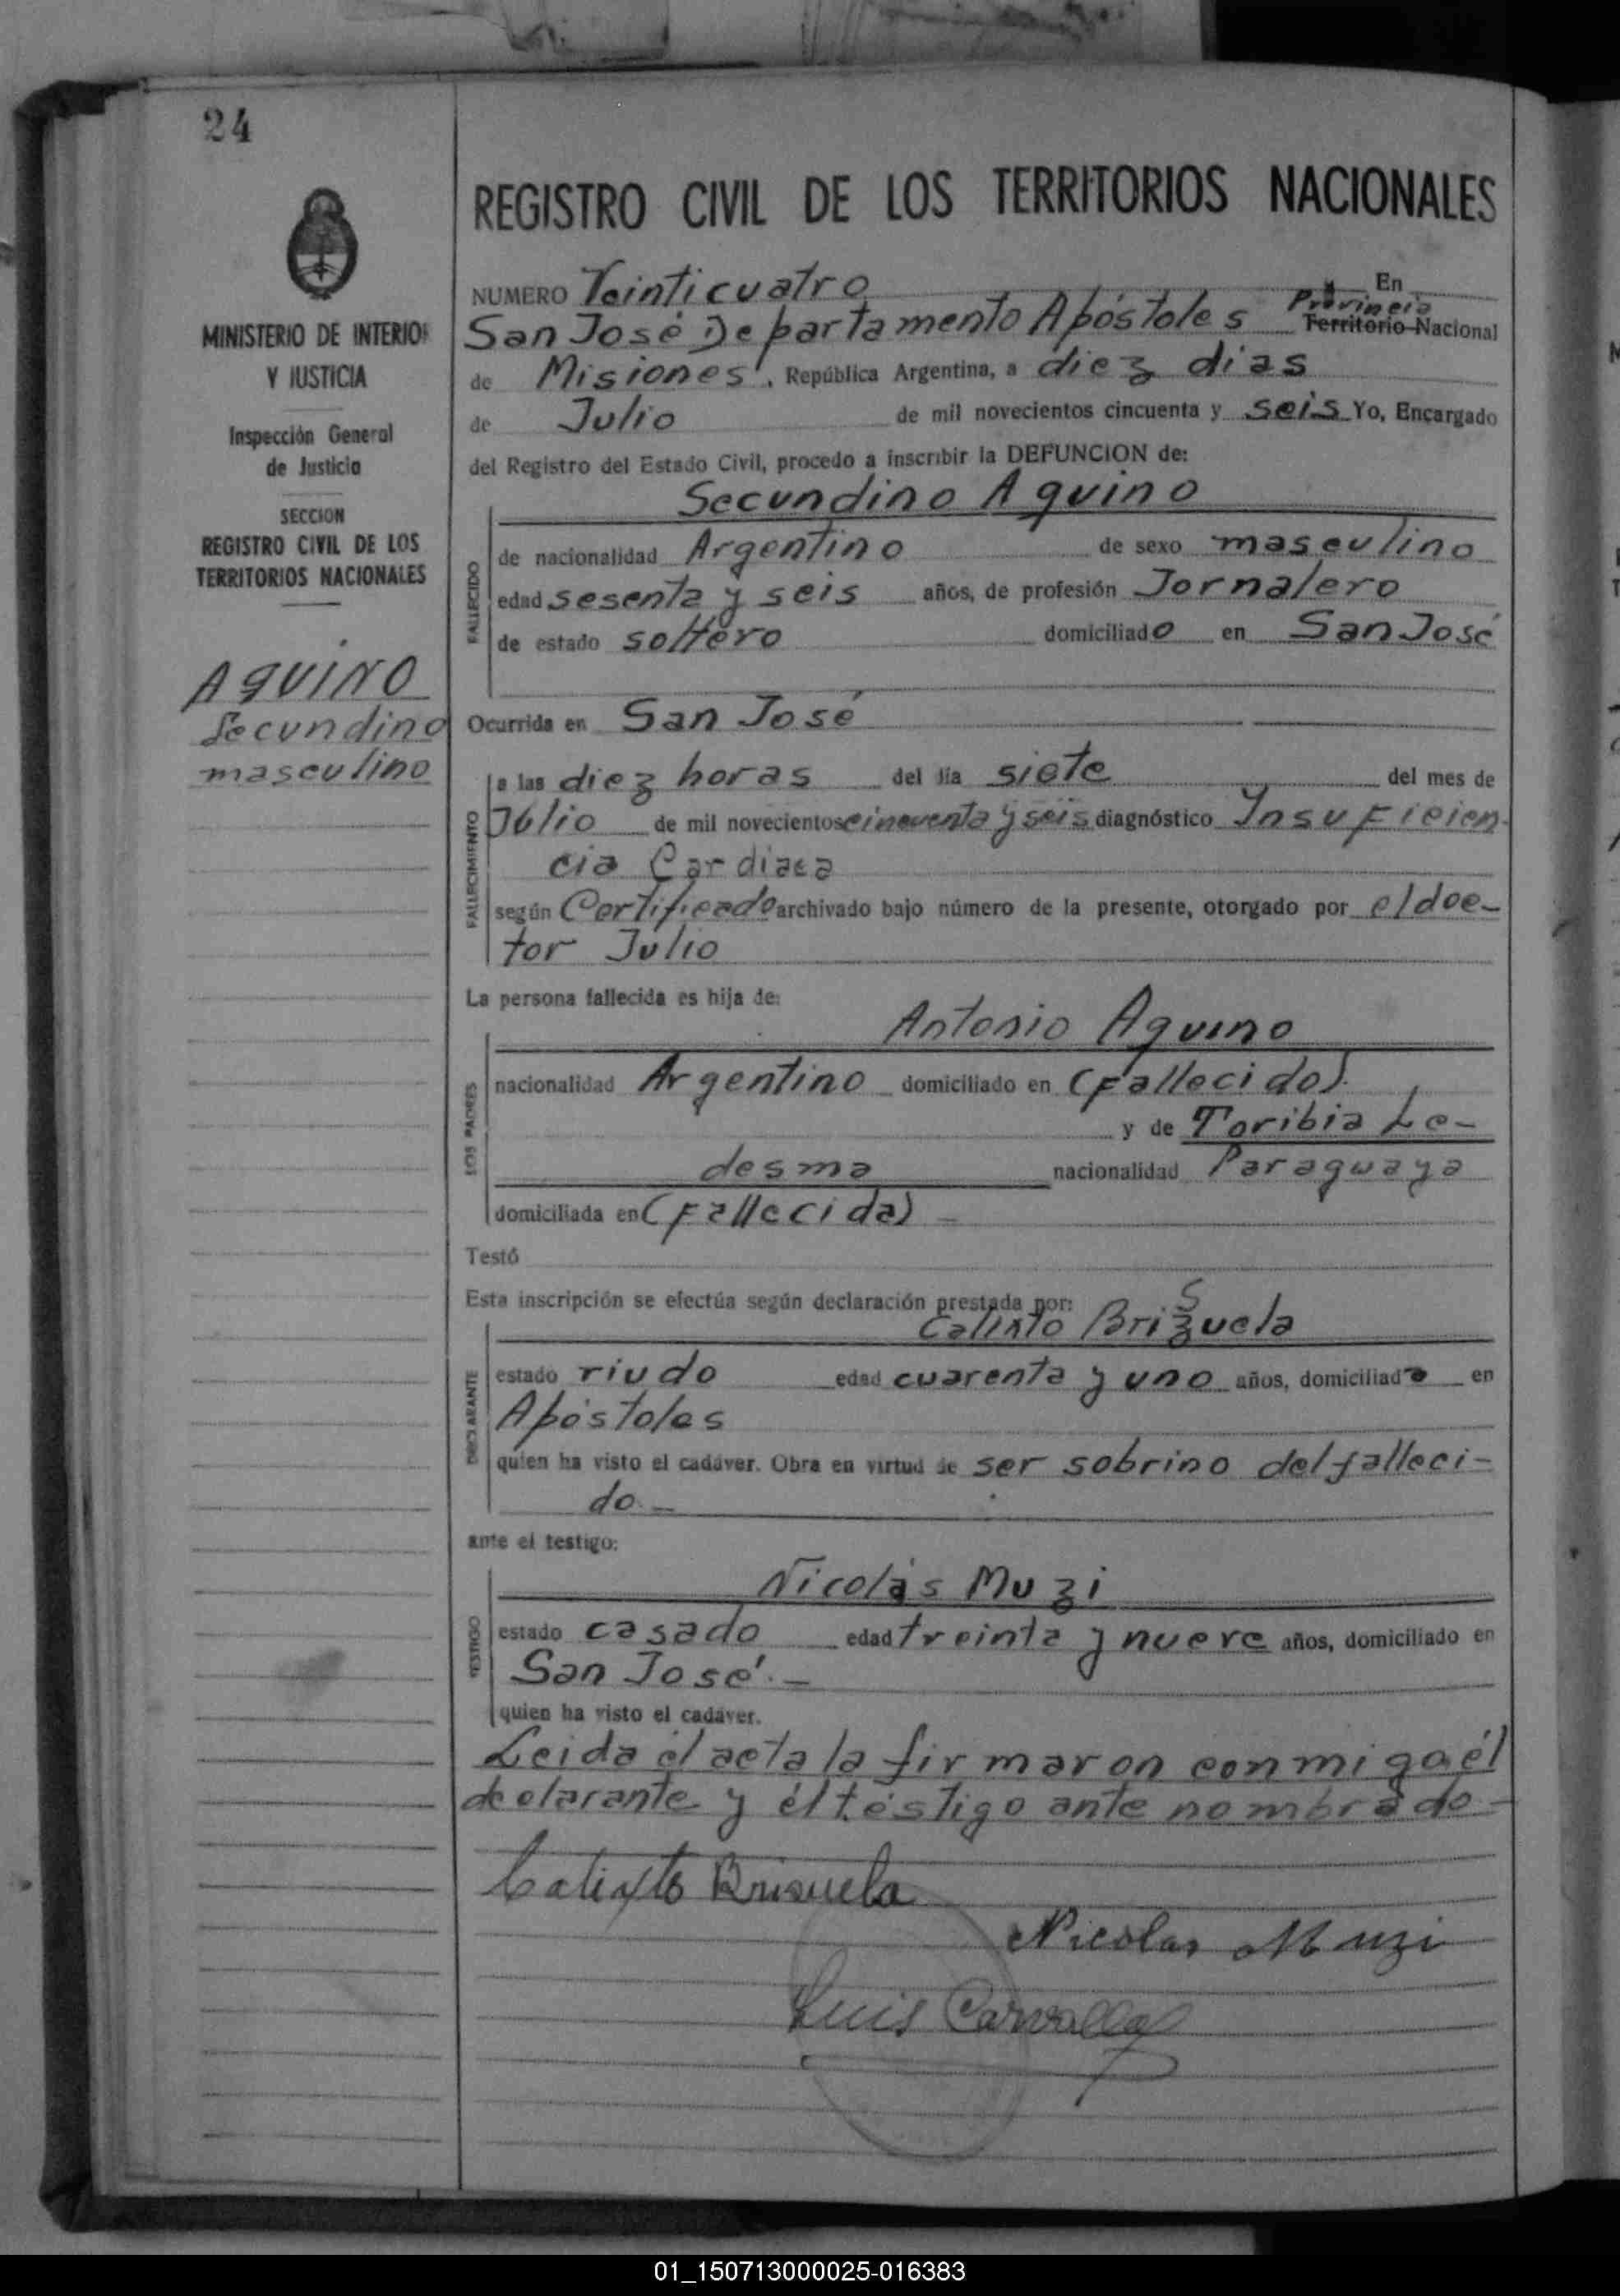 24
MINISTERIO DE INTERIOR
Y JUSTICIA
Inspección General
de Justicia
SECCION
REGISTRO CIVIL DE LOS
TERRITORIOS NACIONALES
AQUINO
Secundino
masculino
REGISTRO CIVIL DE LOS TERRITORIOS NACIONALES
NUMERO Veinticuatro En
Provincia
San José Departamento Apóstoles Territorio Nacional
de Misiones, República Argentina, a diez dias
de Julio de mil novecientos cincuenta y seis Yo, Encargado
del Registro del Estado Civil, procedo a inscribir la DEFUNCION de:
Secundino Aquino
FALLECIDO
de nacionalidad Argentino de sexo masculino
edad sesenta y seis años, de profesión Jornalero
de estado soltero domiciliado en San José
Ocurrida en San José
FALLECIMIENTO
a las diez horas del día siete del mes de
Julio de mil novecientos cincuenta y seis diagnóstico Insuficien-
cia Cardiaca
según Certificado archivado bajo número de la presente, otorgado por el doc-
tor Julio
La persona fallecida es hija de:
Antonio Aquino
LOS PADRES
nacionalidad Argentino domiciliado en (Fallecido).
y de Toribia Le-
desma nacionalidad Paraguaya
domiciliada en (Fallecida) -
Testó
Esta inscripción se efectúa según declaración prestada por:
S
Calixto Brizuela
DECLARANTE
estado viudo edad cuarenta y uno años, domiciliado en
Apóstoles
quien ha visto el cadáver. Obra en virtud de ser sobrino del falleci-
do.-
ante el testigo:
Nicolás Muzi
TESTIGO
estado casado edad treinta y nueve años, domiciliado en
San José.-
quien ha visto el cadáver.
Leida él acta la firmaron conmigo él
declarante y él téstigo ante nombrado.-
Calixto Brisuela
Nicolas Muzi
Luis Carvallo
01_150713000025-016383